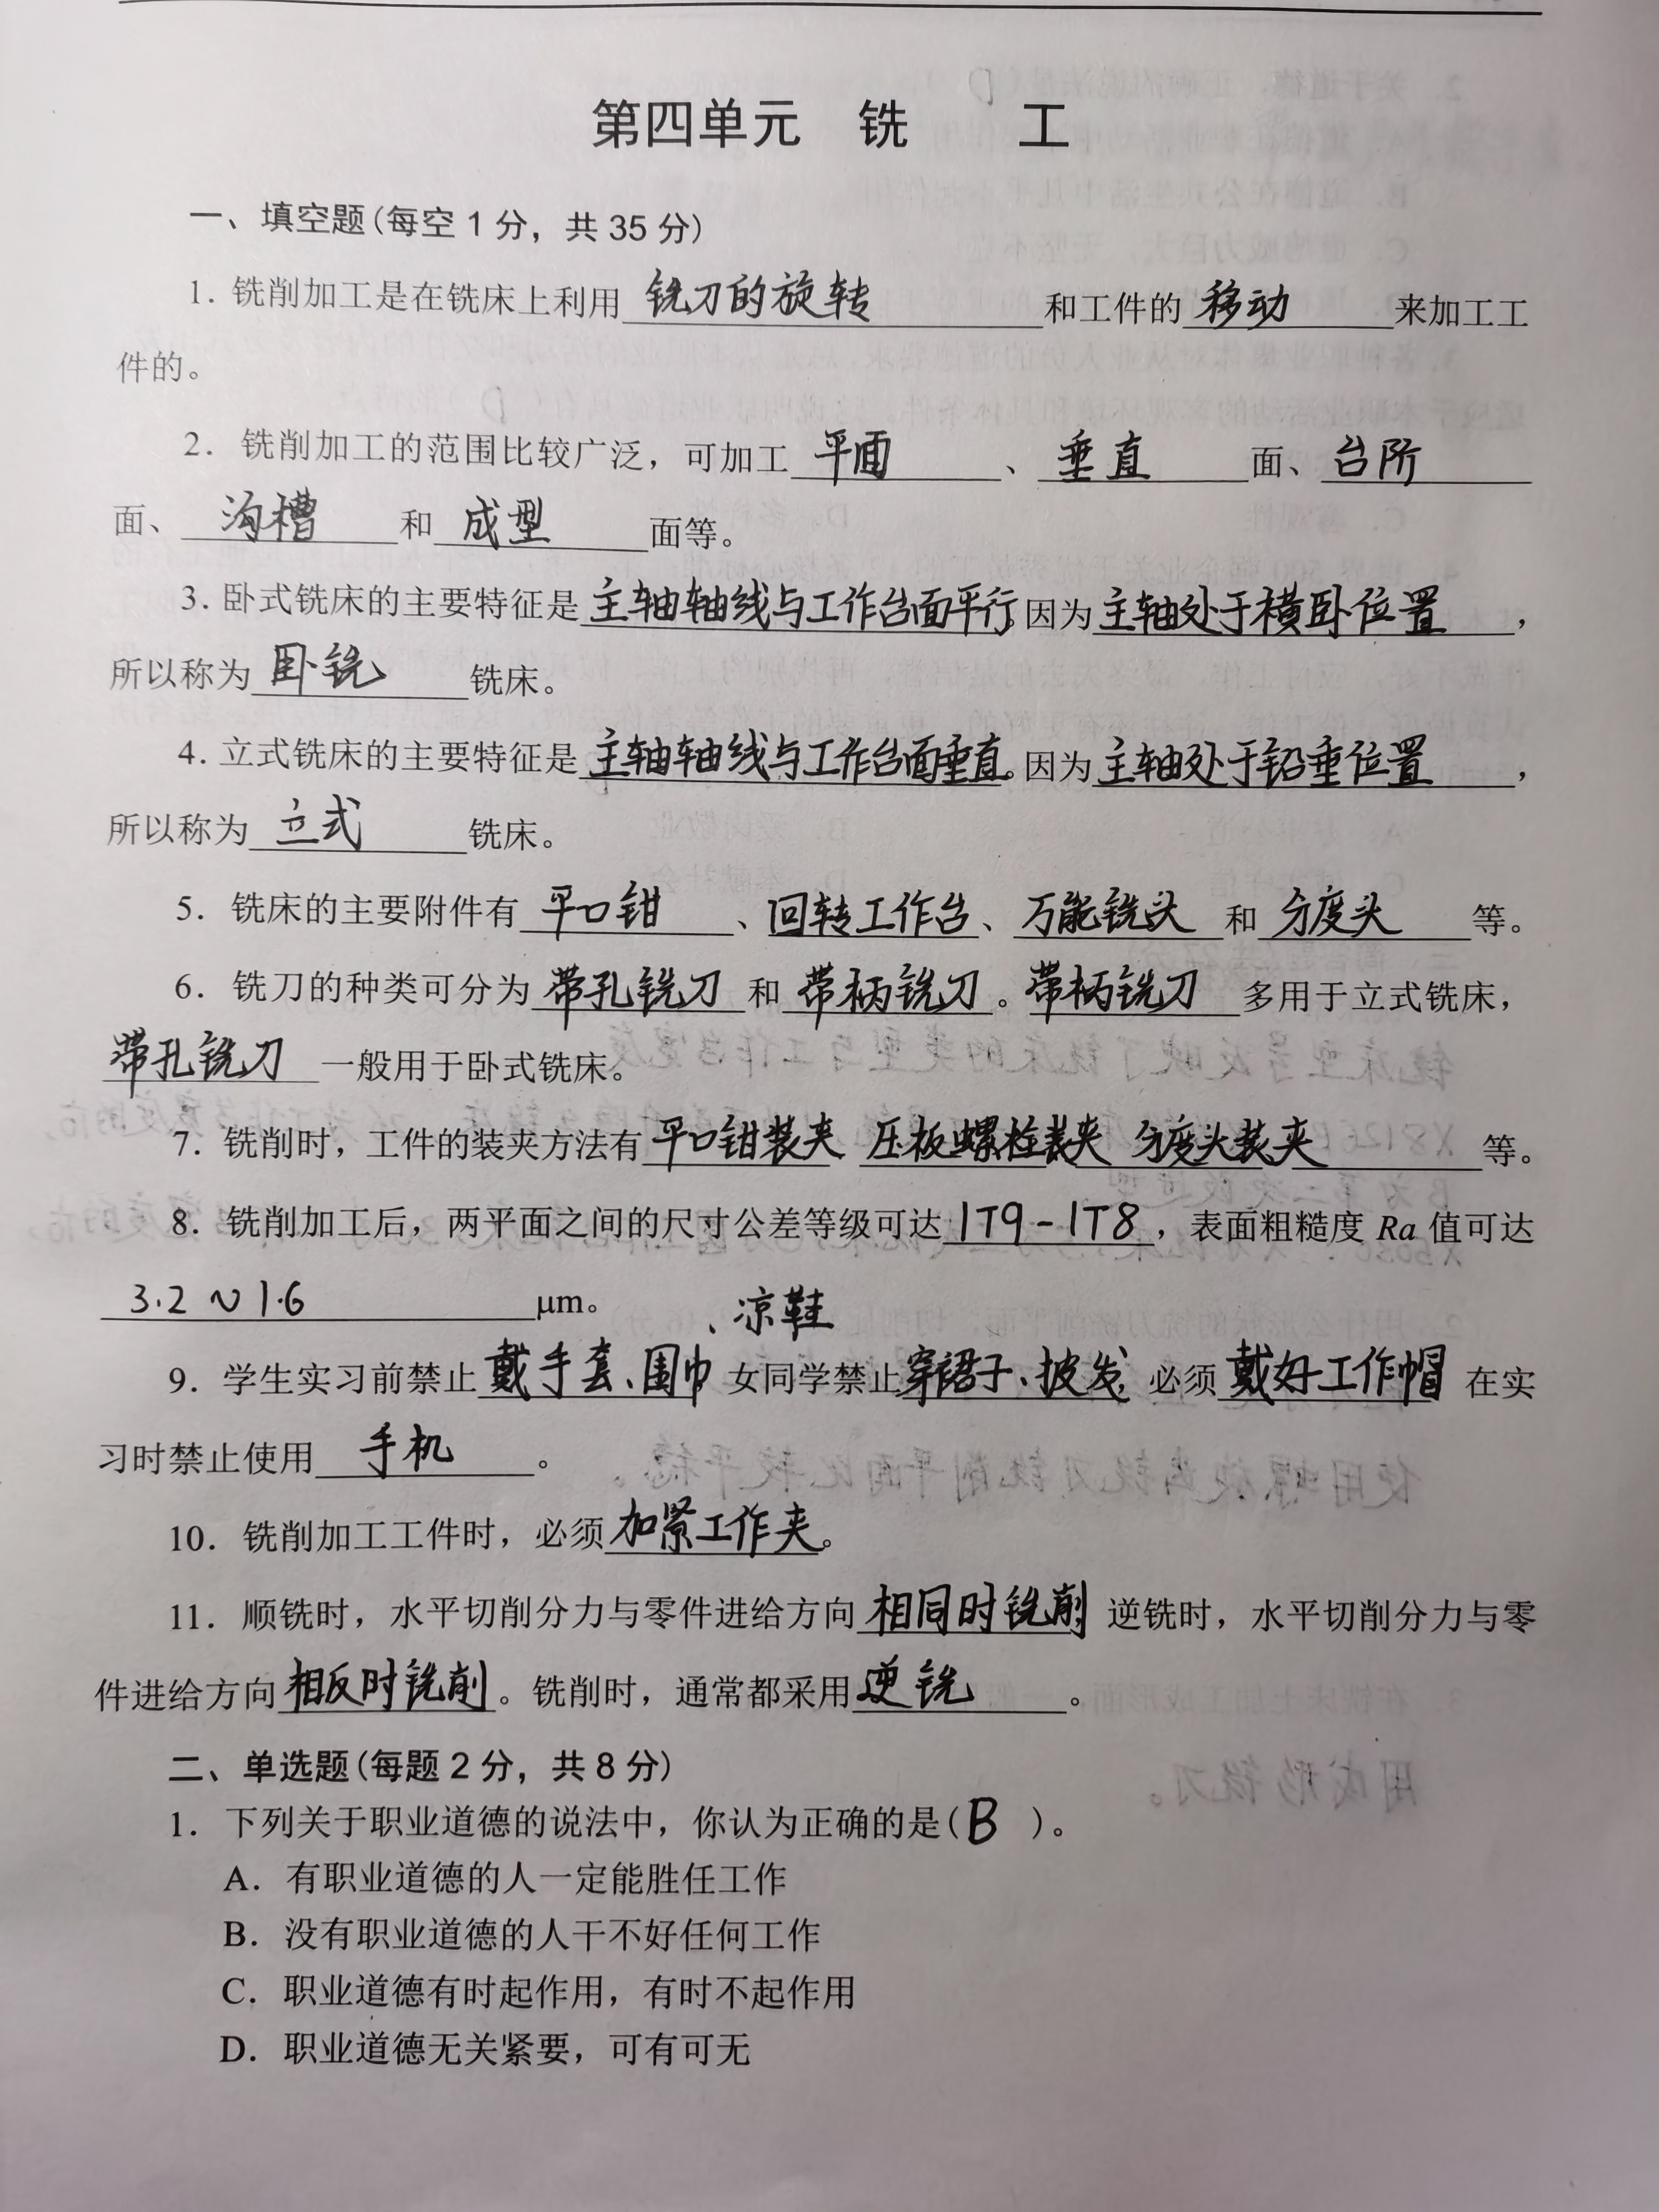 第四单元 铣 工
一、填空题(每空1分，共35分)
1. 铣削加工是在铣床上利用 铣刀的旋转 和工件的 移动 来加工工
件的。
2. 铣削加工的范围比较广泛，可加工 平面 、 垂直 面、 台阶
面、 沟槽 和 成型 面等。
3. 卧式铣床的主要特征是 主轴轴线与工作台面平行。因为 主轴处于横卧位置 ，
所以称为 卧铣 铣床。
4. 立式铣床的主要特征是 主轴轴线与工作台面垂直。因为 主轴处于铅垂位置 ，
所以称为 立式 铣床。
5. 铣床的主要附件有 平口钳 、 回转工作台 、 万能铣头 和 分度头 等。
6. 铣刀的种类可分为 带孔铣刀 和 带柄铣刀 。 带柄铣刀 多用于立式铣床，
带孔铣刀 一般用于卧式铣床。
7. 铣削时，工件的装夹方法有 平口钳装夹 压板螺栓装夹 分度头装夹 等。
8. 铣削加工后，两平面之间的尺寸公差等级可达 1T9-1T8 ，表面粗糙度 Ra 值可达
3.2～1.6 μm。
、凉鞋
9. 学生实习前禁止 戴手套、围巾 女同学禁止 穿裙子、披发， 必须 戴好工作帽 在实
习时禁止使用 手机 。
10. 铣削加工工件时，必须 加紧工作夹。
11. 顺铣时，水平切削分力与零件进给方向 相同时铣削 逆铣时，水平切削分力与零
件进给方向 相反时铣削 。铣削时，通常都采用 逆铣 。
二、单选题(每题2分，共8分)
1. 下列关于职业道德的说法中，你认为正确的是( B )。
A. 有职业道德的人一定能胜任工作
B. 没有职业道德的人干不好任何工作
C. 职业道德有时起作用，有时不起作用
D. 职业道德无关紧要，可有可无